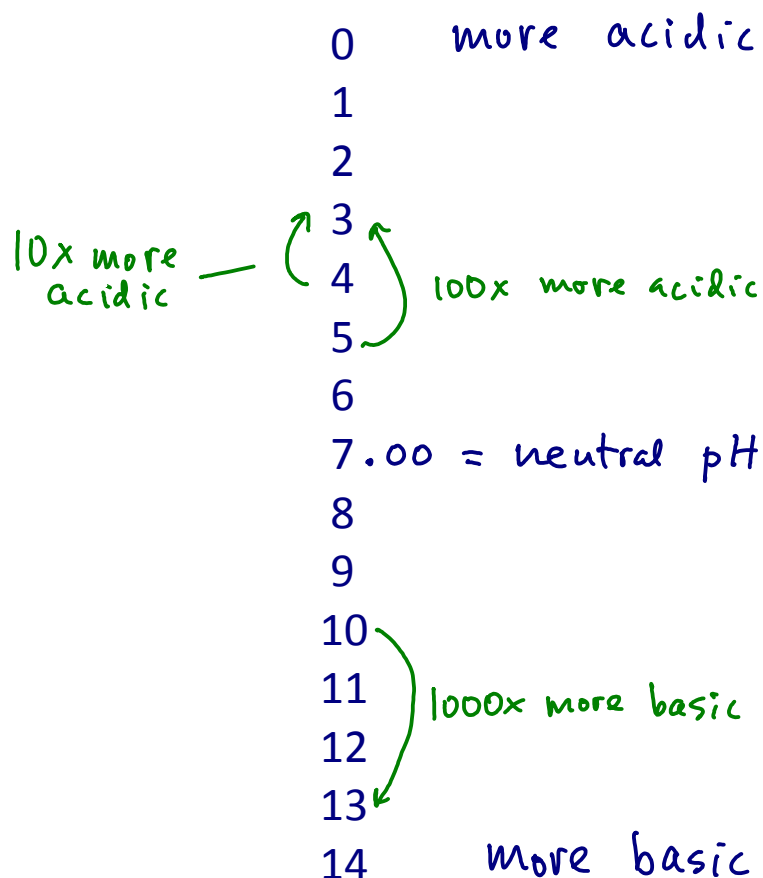 0 more acidic
1
2
3
10x more
acidic
4 100x more acidic
5
6
7.00 = neutral pH
8
9
10
11 1000x more basic
12
13
14 more basic